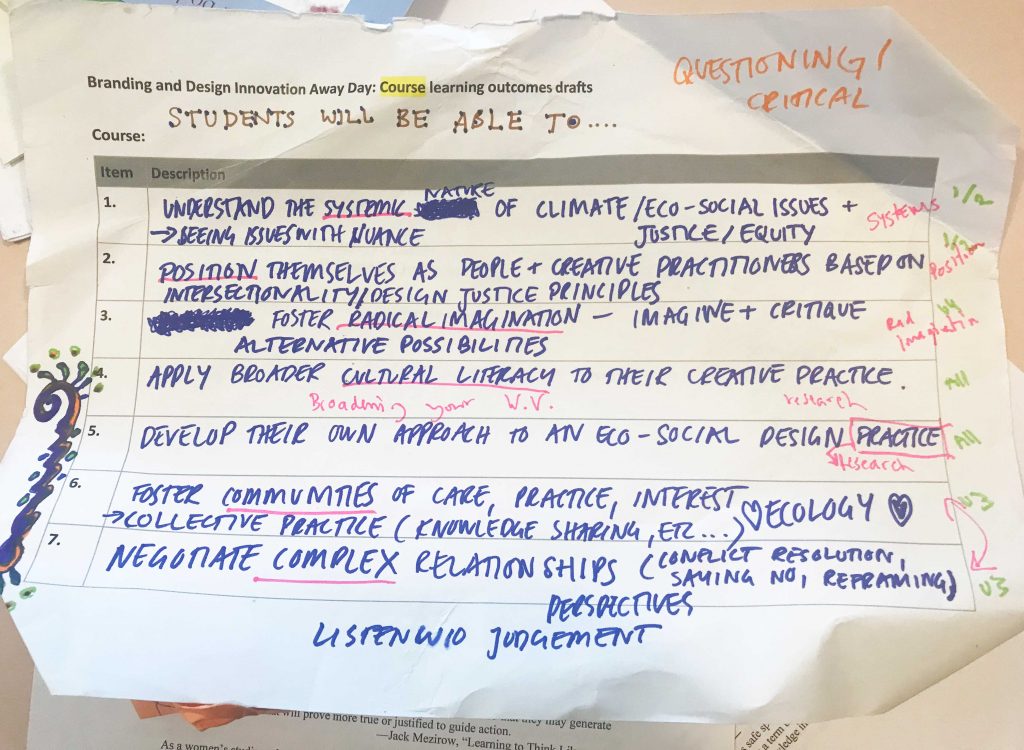 QUESTIONING /
CRITICAL
Branding and Design Innovation Away Day: Course learning outcomes drafts
STUDENTS WILL BE ABLE TO....
Course:
Item Description
1. UNDERSTAND THE SYSTEMIC NATURE OF CLIMATE/ECO-SOCIAL ISSUES +
→ SEEING ISSUES WITH NUANCE JUSTICE/EQUITY
SYSTEMS 1/2
2. POSITION THEMSELVES AS PEOPLE + CREATIVE PRACTITIONERS BASED ON
INTERSECTIONALITY/DESIGN JUSTICE PRINCIPLES
Position
3. FOSTER RADICAL IMAGINATION – IMAGINE + CRITIQUE
ALTERNATIVE POSSIBILITIES
Rad
imagination
4. APPLY BROADER CULTURAL LITERACY TO THEIR CREATIVE PRACTICE. All
Broadening your W.V. research
5. DEVELOP THEIR OWN APPROACH TO AN ECO-SOCIAL DESIGN PRACTICE All
research
6. FOSTER COMMUNITIES OF CARE, PRACTICE, INTEREST ECOLOGY U3
→ COLLECTIVE PRACTICE (KNOWLEDGE SHARING, ETC...)
7. NEGOTIATE COMPLEX RELATIONSHIPS (CONFLICT RESOLUTION,
SAYING NO, REFRAMING) U3
PERSPECTIVES
LISTEN W/O JUDGEMENT
will prove more true or justified to guide action.
that they may generate
—Jack Mezirow, "Learning to Think
As a women's
safe
a term